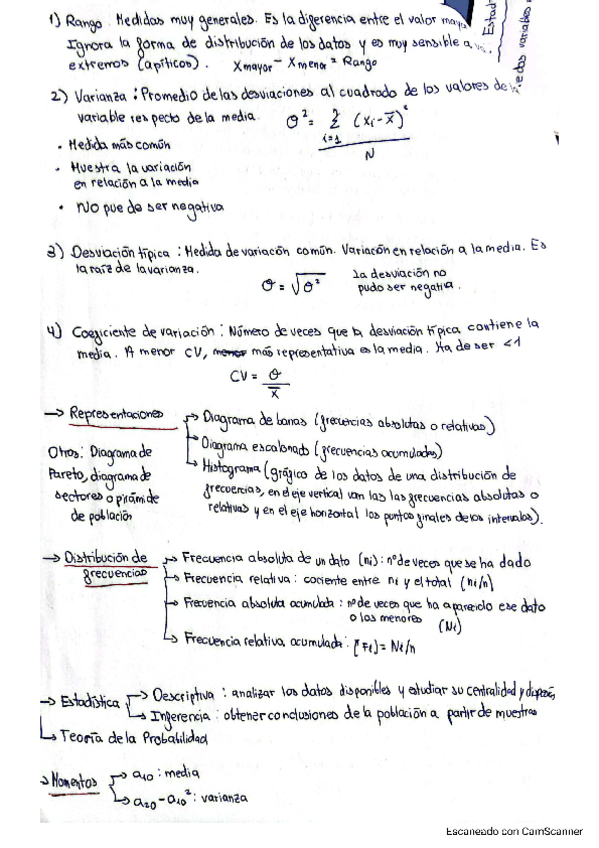 1) Rango. Medidas muy generales. Es la diferencia entre el valor mayor
Ignora la forma de distribución de los datos y es muy sensible a
extremos (apíticos). Xmayor - Xmenor = Rango
Estad
e dos variables
2) Varianza: Promedio de las desviaciones al cuadrado de los valores de
variable respecto de la media. σ² = Σ i=1 (xi - x̄)² / N
• Medida más común
• Muestra la variación
en relación a la media
• No puede ser negativa
3) Desviación típica: Medida de variación común. Variación en relación a la media. Es
la raíz de la varianza.
σ = √σ² la desviación no
pudo ser negativa.
4) Coeficiente de variación: Número de veces que la desviación típica contiene la
media. A menor CV, menor más representativa es la media. Ha de ser <1
CV = σ / x̄
→ Representaciones → Diagrama de barras (frecuencias absolutas o relativas)
→ Diagrama escalonado (frecuencias acumuladas)
→ Histograma (gráfico de los datos de una distribución de
frecuencias, en el eje vertical van las las frecuencias absolutas o
relativas y en el eje horizontal los puntos finales de los intervalos).
Otros: Diagrama de
Pareto, diagrama de
sectores o pirámide
de población
→ Distribución de
frecuencias
→ Frecuencia absoluta de un dato (ni): nº de veces que se ha dado
→ Frecuencia relativa: cociente entre ni y el total (ni/n)
→ Frecuencia absoluta acumulada: nº de veces que ha aparecido ese dato
o los menores (Ni)
→ Frecuencia relativa acumulada: (Fi) = Ni/n
→ Estadística → Descriptiva: analizar los datos disponibles y estudiar su centralidad y dispersión
→ Inferencia: obtener conclusiones de la población a partir de muestras
→ Teoría de la Probabilidad
→ Momentos → a10: media
→ a20 - a10²: varianza
Escaneado con CamScanner